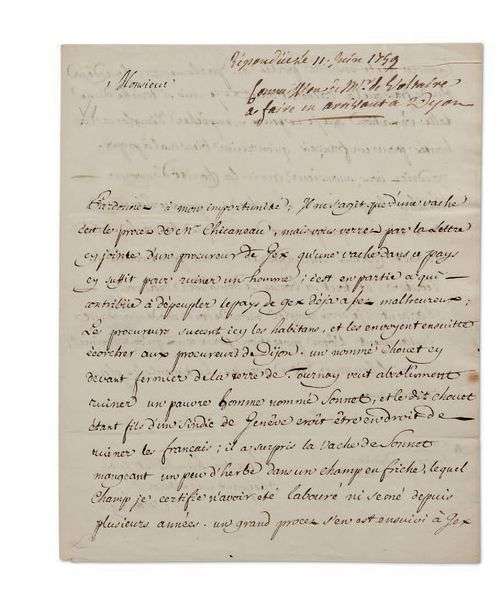 Répondu le 11. Juin 1759
Monsieur
à faire en arrivant à Dijon
Pardonnez à mon importunité; Il ne s'agit que d'une vache
c'est le procez de Mr. Chicaneau, mais vous verrez par la Lettre
cy jointe d'un procureur de Gex qu'une vache dans ce pays
cy suffit pour ruiner un homme; c'est en partie ce qui
contribüe à dépeupler le pays de gex déja assez malheureux;
Les procureurs sucent icy les habitans, et les envoyent ensuitte
écorcher aux procureurs de Dijon. un nommé Chouet cy
devant fermier de la terre de Tournay veut absolument
ruiner un pauvre homme nommé Sonnet, et le dit chouet
étant fils d'un sindic de Genêve croit être en droit de
ruiner les français; il a surpris la vache de Sonnet
mangeant un peu d'herbe dans un champ en friche, lequel
Champ je certifie n'avoir été labouré ni semé depuis
plusieurs années. un grand procez s'en est ensuivi à Gex